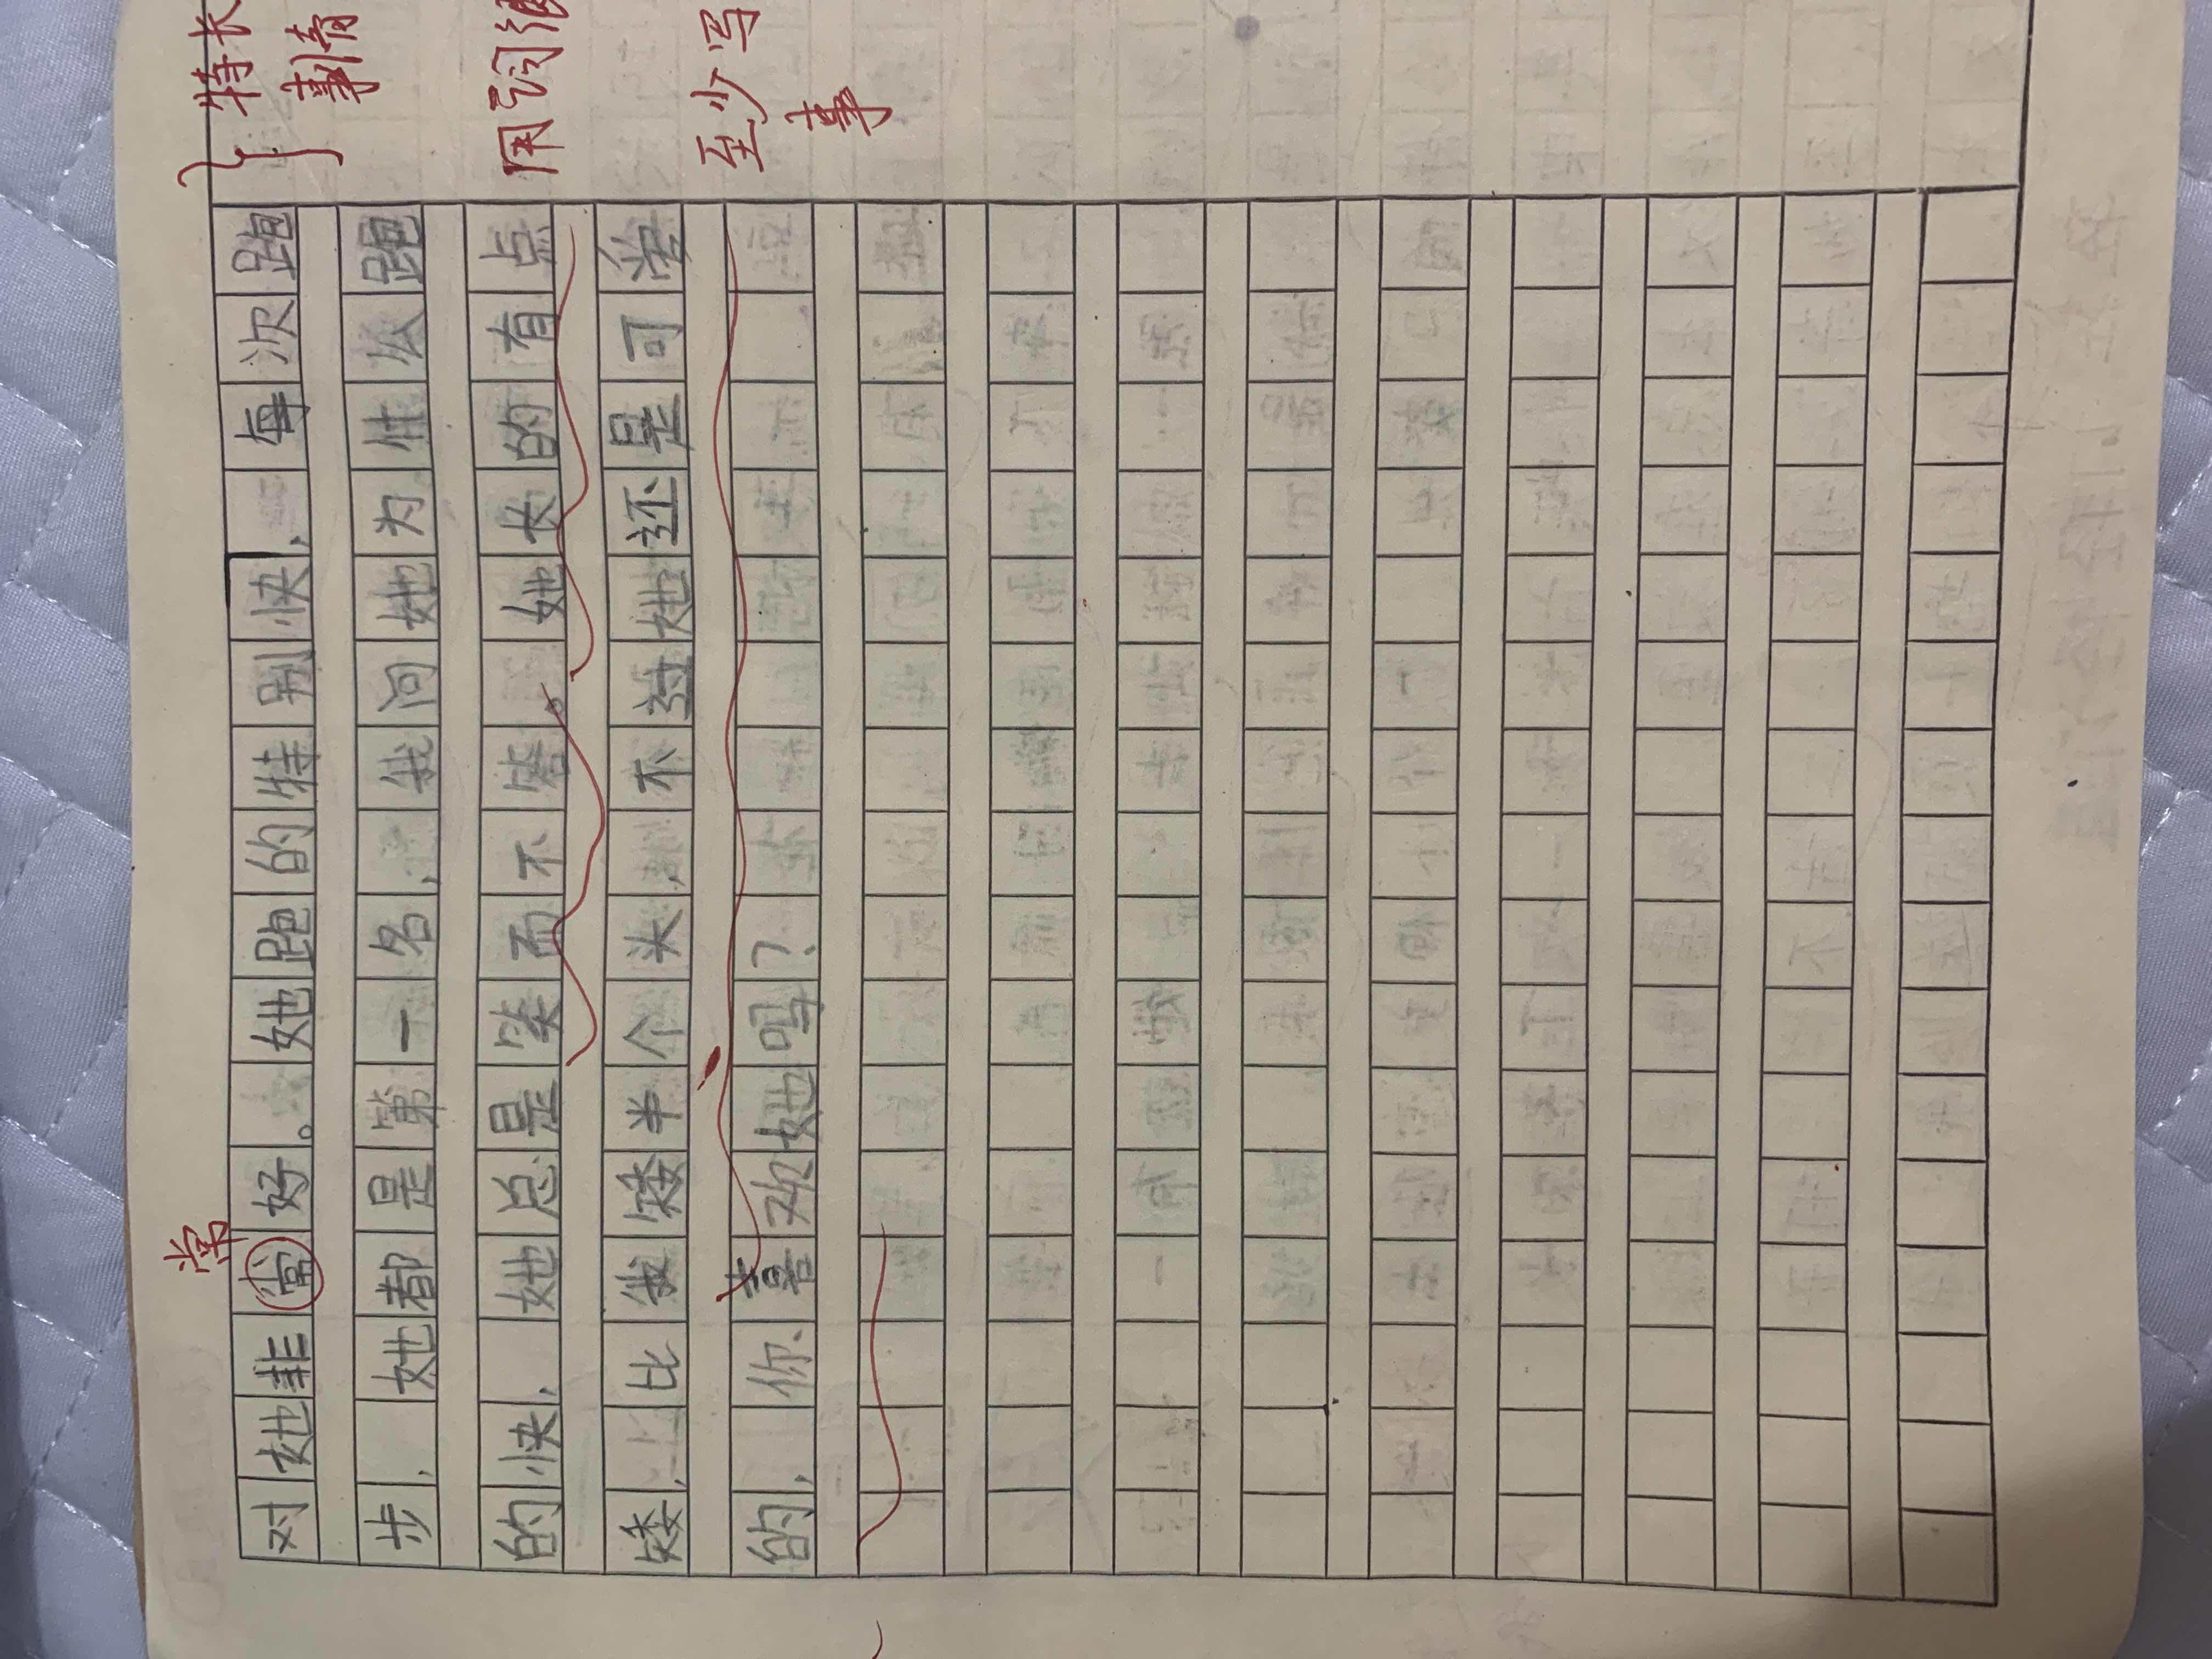 对她非常好。她跑的特别快，每次跑
步，她都是第一名，我问她为什么跑
的快，她总是笑而不答。她长的有点
矮，比我矮半个头，不过她还是可爱
的，你喜欢她吗？
常
特长
事情
用词
至少写
事